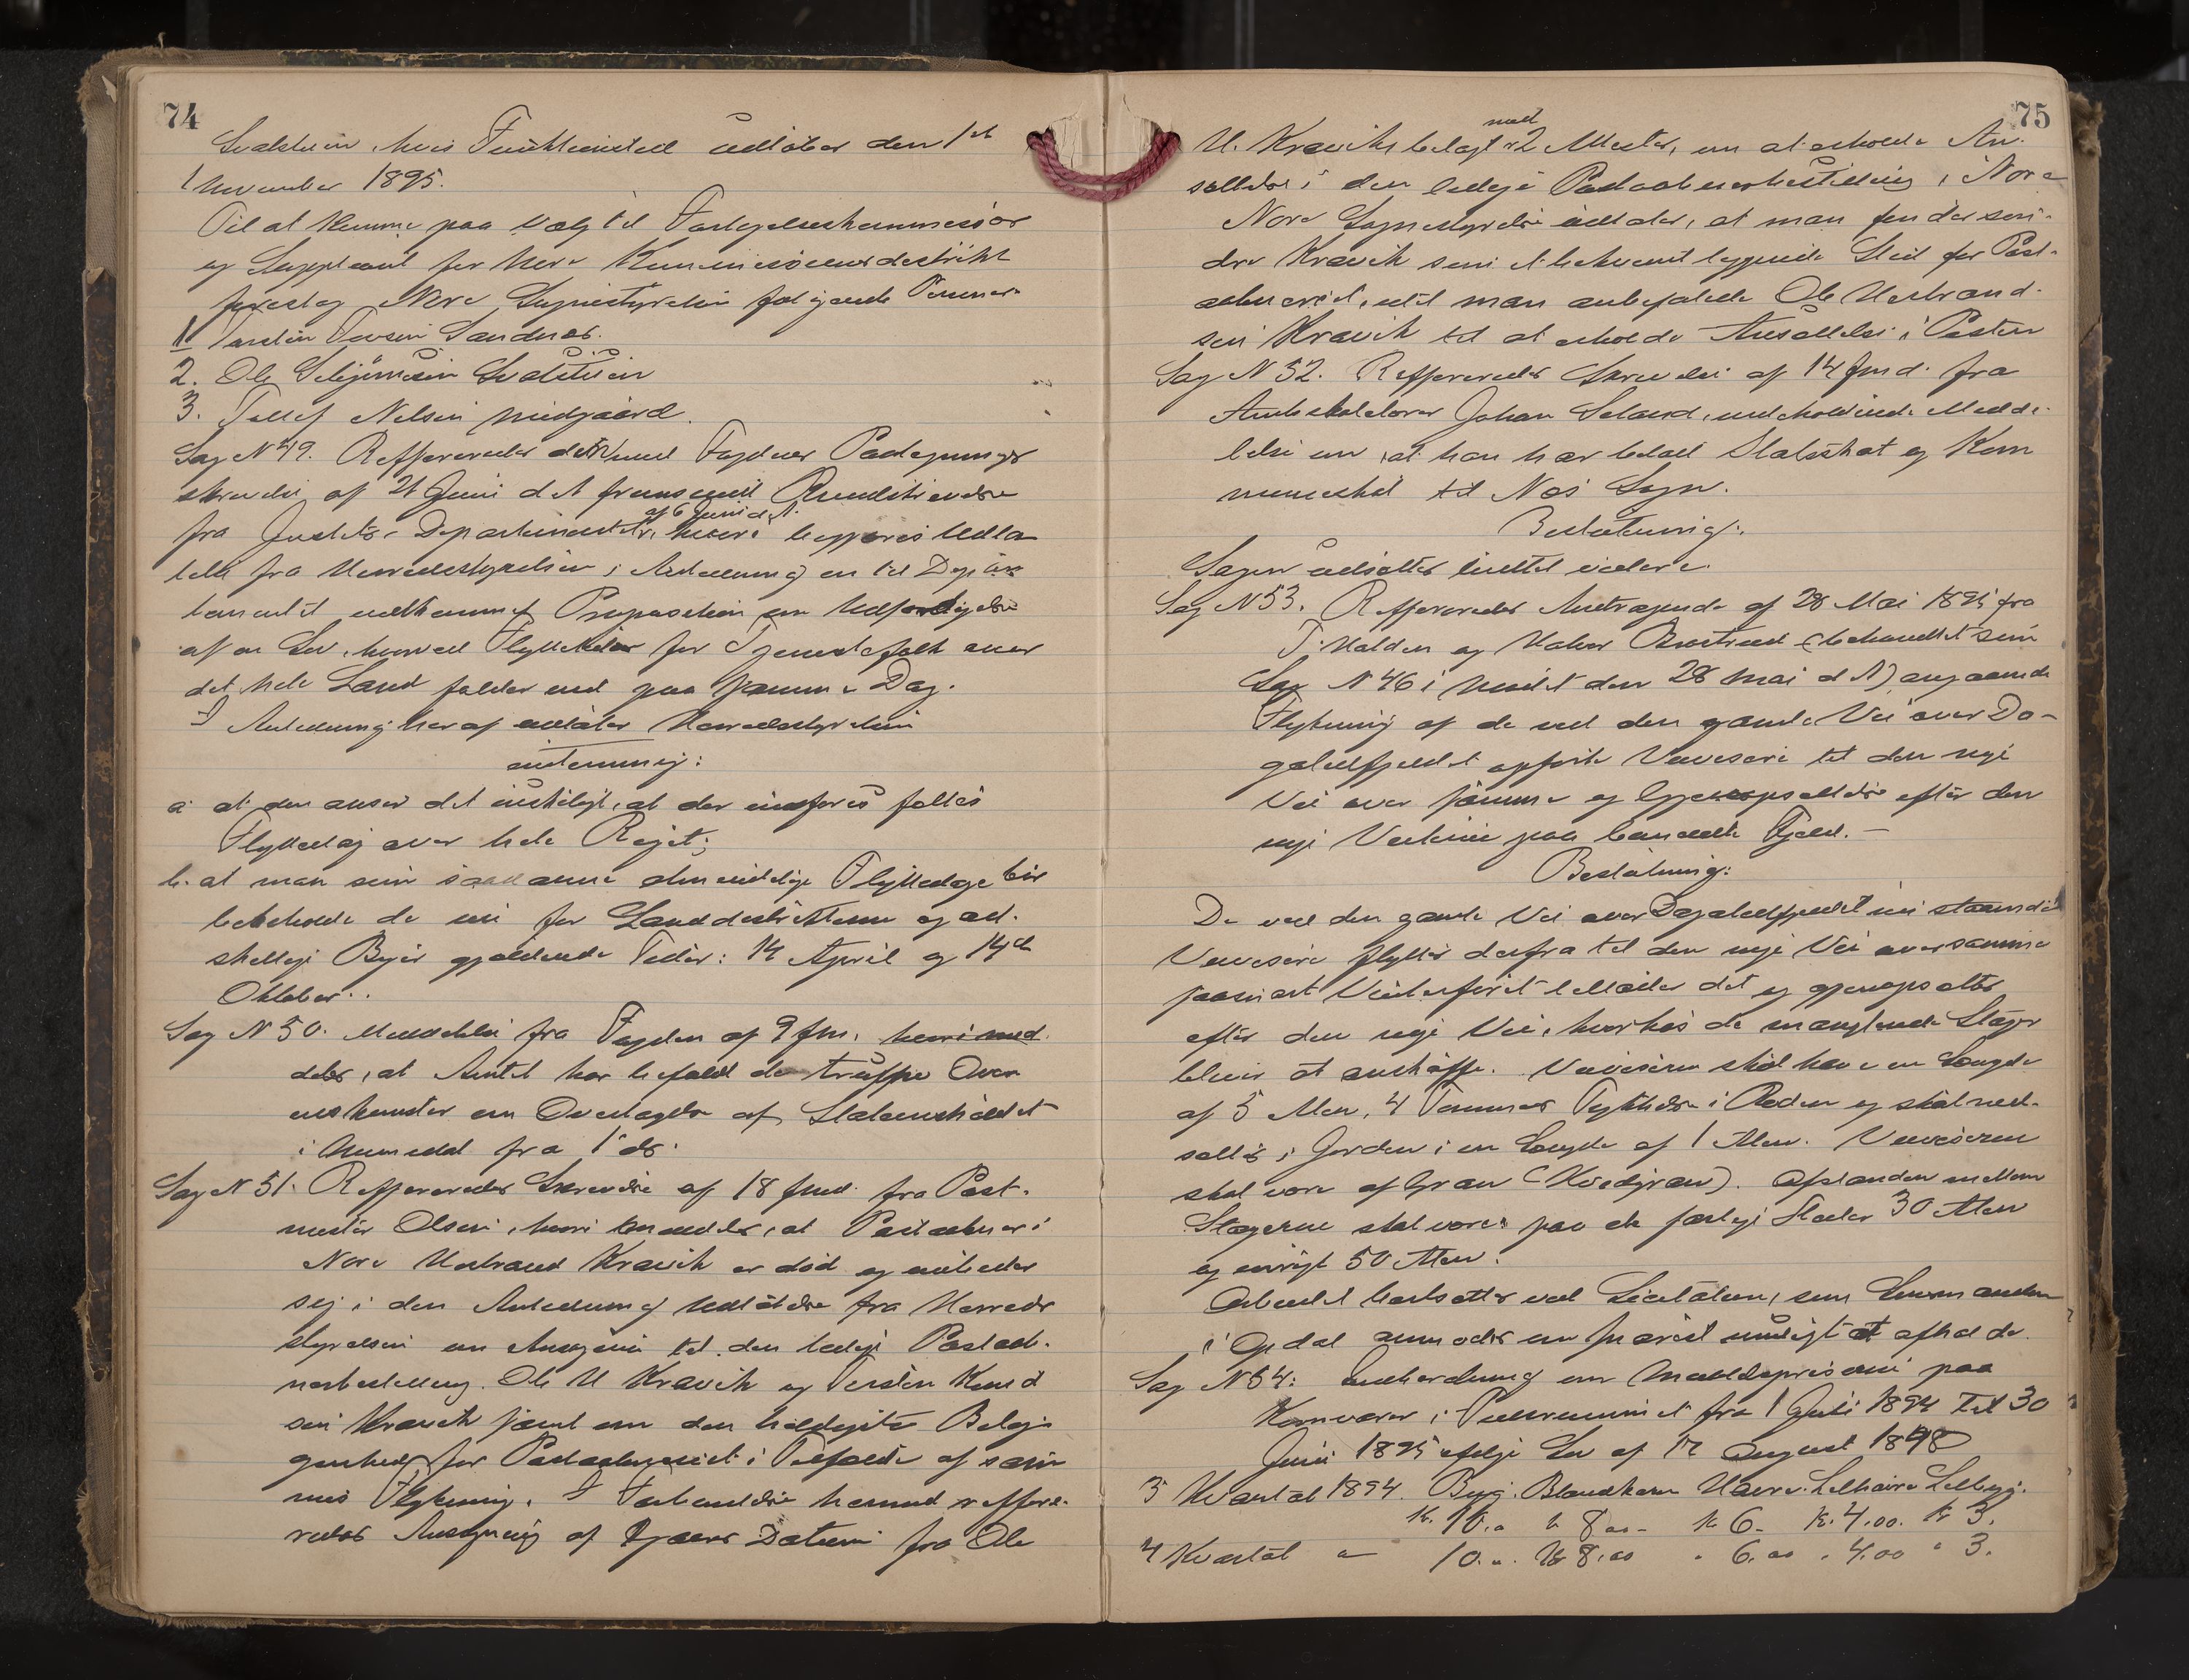 74
Svalstuen, hvis Funktionstid udløber den 1ste
November 1895.
Til at komme paa Valg til Forligelseskommissær
og Suppleant for Nore Kommissionsdistrikt
foreslog Nore Sognestyrelse følgende Personer
1 Torstein Sandnes.
2. Ole Svalstuen
3. Tollef Nelsen Midgaard.
Sag N 49. Reffereredes det med Fogdens Paategnings
skrivelse af 21 Juni d A fremsendt
fra Justits Departementet af 6 Juni d. A. hvori begjæres Udta
lelse fra Herredsstyrelsen i Anledning en til Depar
tementet indkommet Proposition om Udfærdigelse
af en Lov, hvorved Flyttetiden for Tjenestefolk over
det hele Land falder ind paa samme Dag.
I Anledning heraf udtaler Herredsstyrelsen
enstemmig:
a at den anser det ønskeligt, at der indføres fælles
Flyttedag over hele Riget;
b. at man som saadanne almindelige Flyttedage bør
beholde de nu for Landdistrikterne og ad-
skillige Byer gjældende Tider: 14 April og 14de
Oktober.
Sag N 50. Meddelelse fra Fogden af 9 fm. hvori med
deles, at Amtet har bifaldt de trufne Over
enskomster om Overtagelse af
i Numedal fra 1 ds.
Sag N 51. Reffereredes Skrivelse af 18 fmd. fra Post-
mester Olsen, hvori anmeldes, at Postaabner i
Nore Herbrand Kravik er død og udbeder
sig i den Anledning Udtalelse fra Herreds
styrelsen om Ansøgerne til den ledige Postaab-
nerbestilling. Ole H Kravik og Torstein Knud
sen Kravik samt om den heldigste Belig-
genhed for Postaabneriet i Tilfælde af sam
mes Flytning. I Forbindelse hermed reffere-
redes Ansøgning af Datum fra Ole
75
H. Kravik belagt med 2 Attester, om at erholde An-
sættelse i den ledige Postaabnerbestilling i Nore
Nore Sognestyrelse udtaler, at man
Kravik som et bekvemt liggende Sted for Post-
aabneriet, idet man anbefalede Ole Herbrand-
sen Kravik til at erholde Ansættelse i Posten
Sag N 52. Reffereredes Skrivelse af 14 fmd. fra
Amtsskolelærer Johan Seland, indeholdende Medde-
lelse om, at han har betalt Statsskat og Kom
muneskat til Næs Sogn.
Beslutning:
Sagen udsættes indtil videre.
Sag N 53. Reffereredes Andragende af 28 Mai 1895 fra
T. Halden og Halvor (behandlet som
Sag N 46 i Mødet den 28 Mai d A) angaaende
Flytning af de ved den gamle Vei over Da-
galidfjeldet opførte Veivisere til den nye
Vei over samme og Gjenopsættelse efter den
nye Veilinie paa bemeldte Fjeld. —
Beslutning:
De ved den gamle Vei over Dagalidfjeldet nu staaende
Veivisere flyttes derfra til den nye Vei over samme
saasnart Vinterføret tillader det og gjenopsættes
efter den nye Vei, hvorhos de manglende Stager
bliver at anskaffe. Veiviserne skal have en Længde
af 5 Alen, 4 Tommer Tykkelse i Roden og skal ned-
sættes i Jorden i en Længde af 1 Alen. Veiviserne
skal være af Gran (Kvedgran). Afstanden mellem
Stagerne skal være paa de farlige Steder 30 Alen
og øvrigt 50 Alen.
Arbeidet bortsættes ved Licitation, som Lensmanden
i Opdal anmodes om snarest muligt at afholde.
Sag N 54: Indberetning om Middelpriserne paa
Kornvarer i Tidsrummet fra 1 Juli 1894 til 30
Juni 1895 ifølge Lov af 17 August 1848
3 Kvartal 1894. Byg. Blandkorn Havre.
Kr. 10.00 Kr 8.00 - Kr 6. - Kr. 4.00. Kr 3.
4 Kvartal " 10.00. Kr 8.00 " 6.00 " 4.00 " 3.